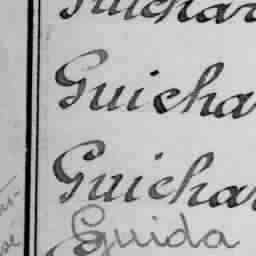 Guichar
Guichar
Guichar
Guida